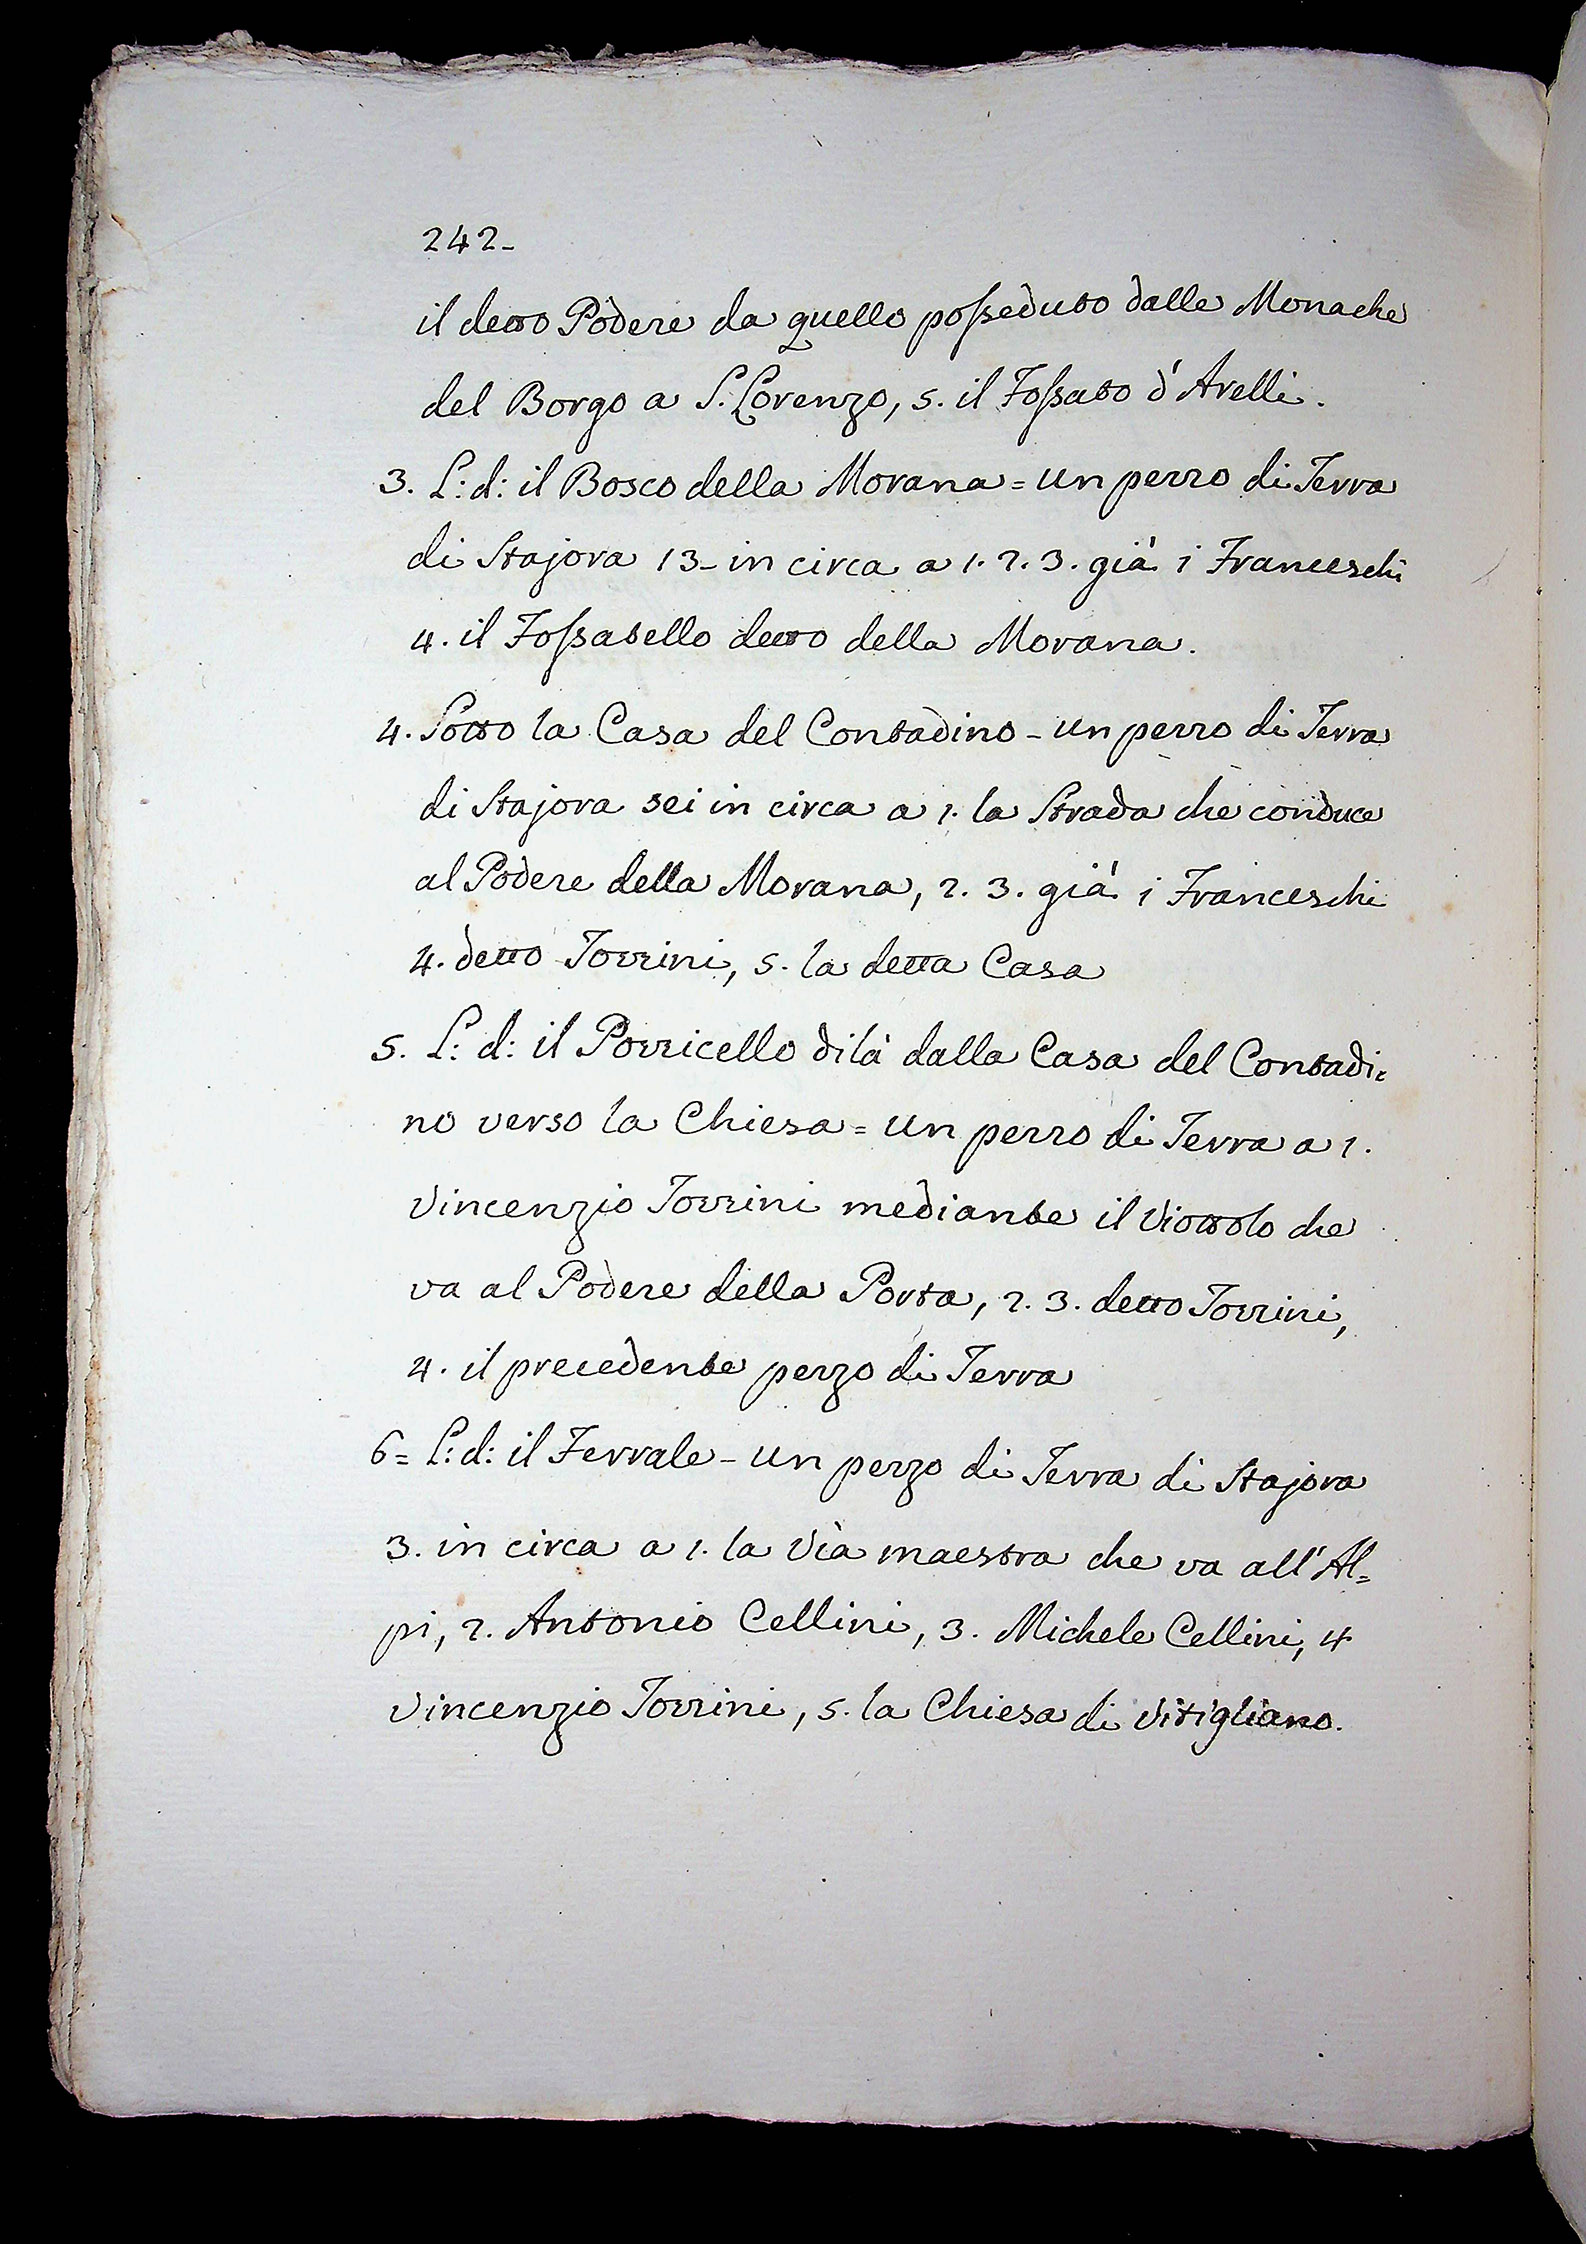 242-
il detto Podere da quello posseduto dalle Monache
del Borgo a S. Lorenzo, 5. il Fossato d'Arelli.
3. L: d: il Bosco della Morana = un pezzo di Terra
di Stajora 13- in circa a 1. 2. 3. già i Franceschi
4. il Fossatello detto della Morana.
4. Sotto la Casa del Contadino - un pezzo di Terra
di Stajora sei in circa a 1. la Strada che conduce
al Podere della Morana, 2. 3. già i Franceschi
4. detto Torrini, 5. la detta Casa
5. L: d: il Porricello di là dalla Casa del Contadi=
no verso la Chiesa = un pezzo di Terra a 1.
Vincenzio Torrini mediante il Viottolo che
va al Podere della Porta, 2. 3. detto Torrini,
4. il precedente pezzo di Terra
6= L: d: il Ferrale - un pezzo di Terra di Stajora
3. in circa a 1. la Via maestra che va all'Al=
pi, 2. Antonio Cellini, 3. Michele Cellini, 4
Vincenzio Torrini, 5. la Chiesa di Vitigliano.